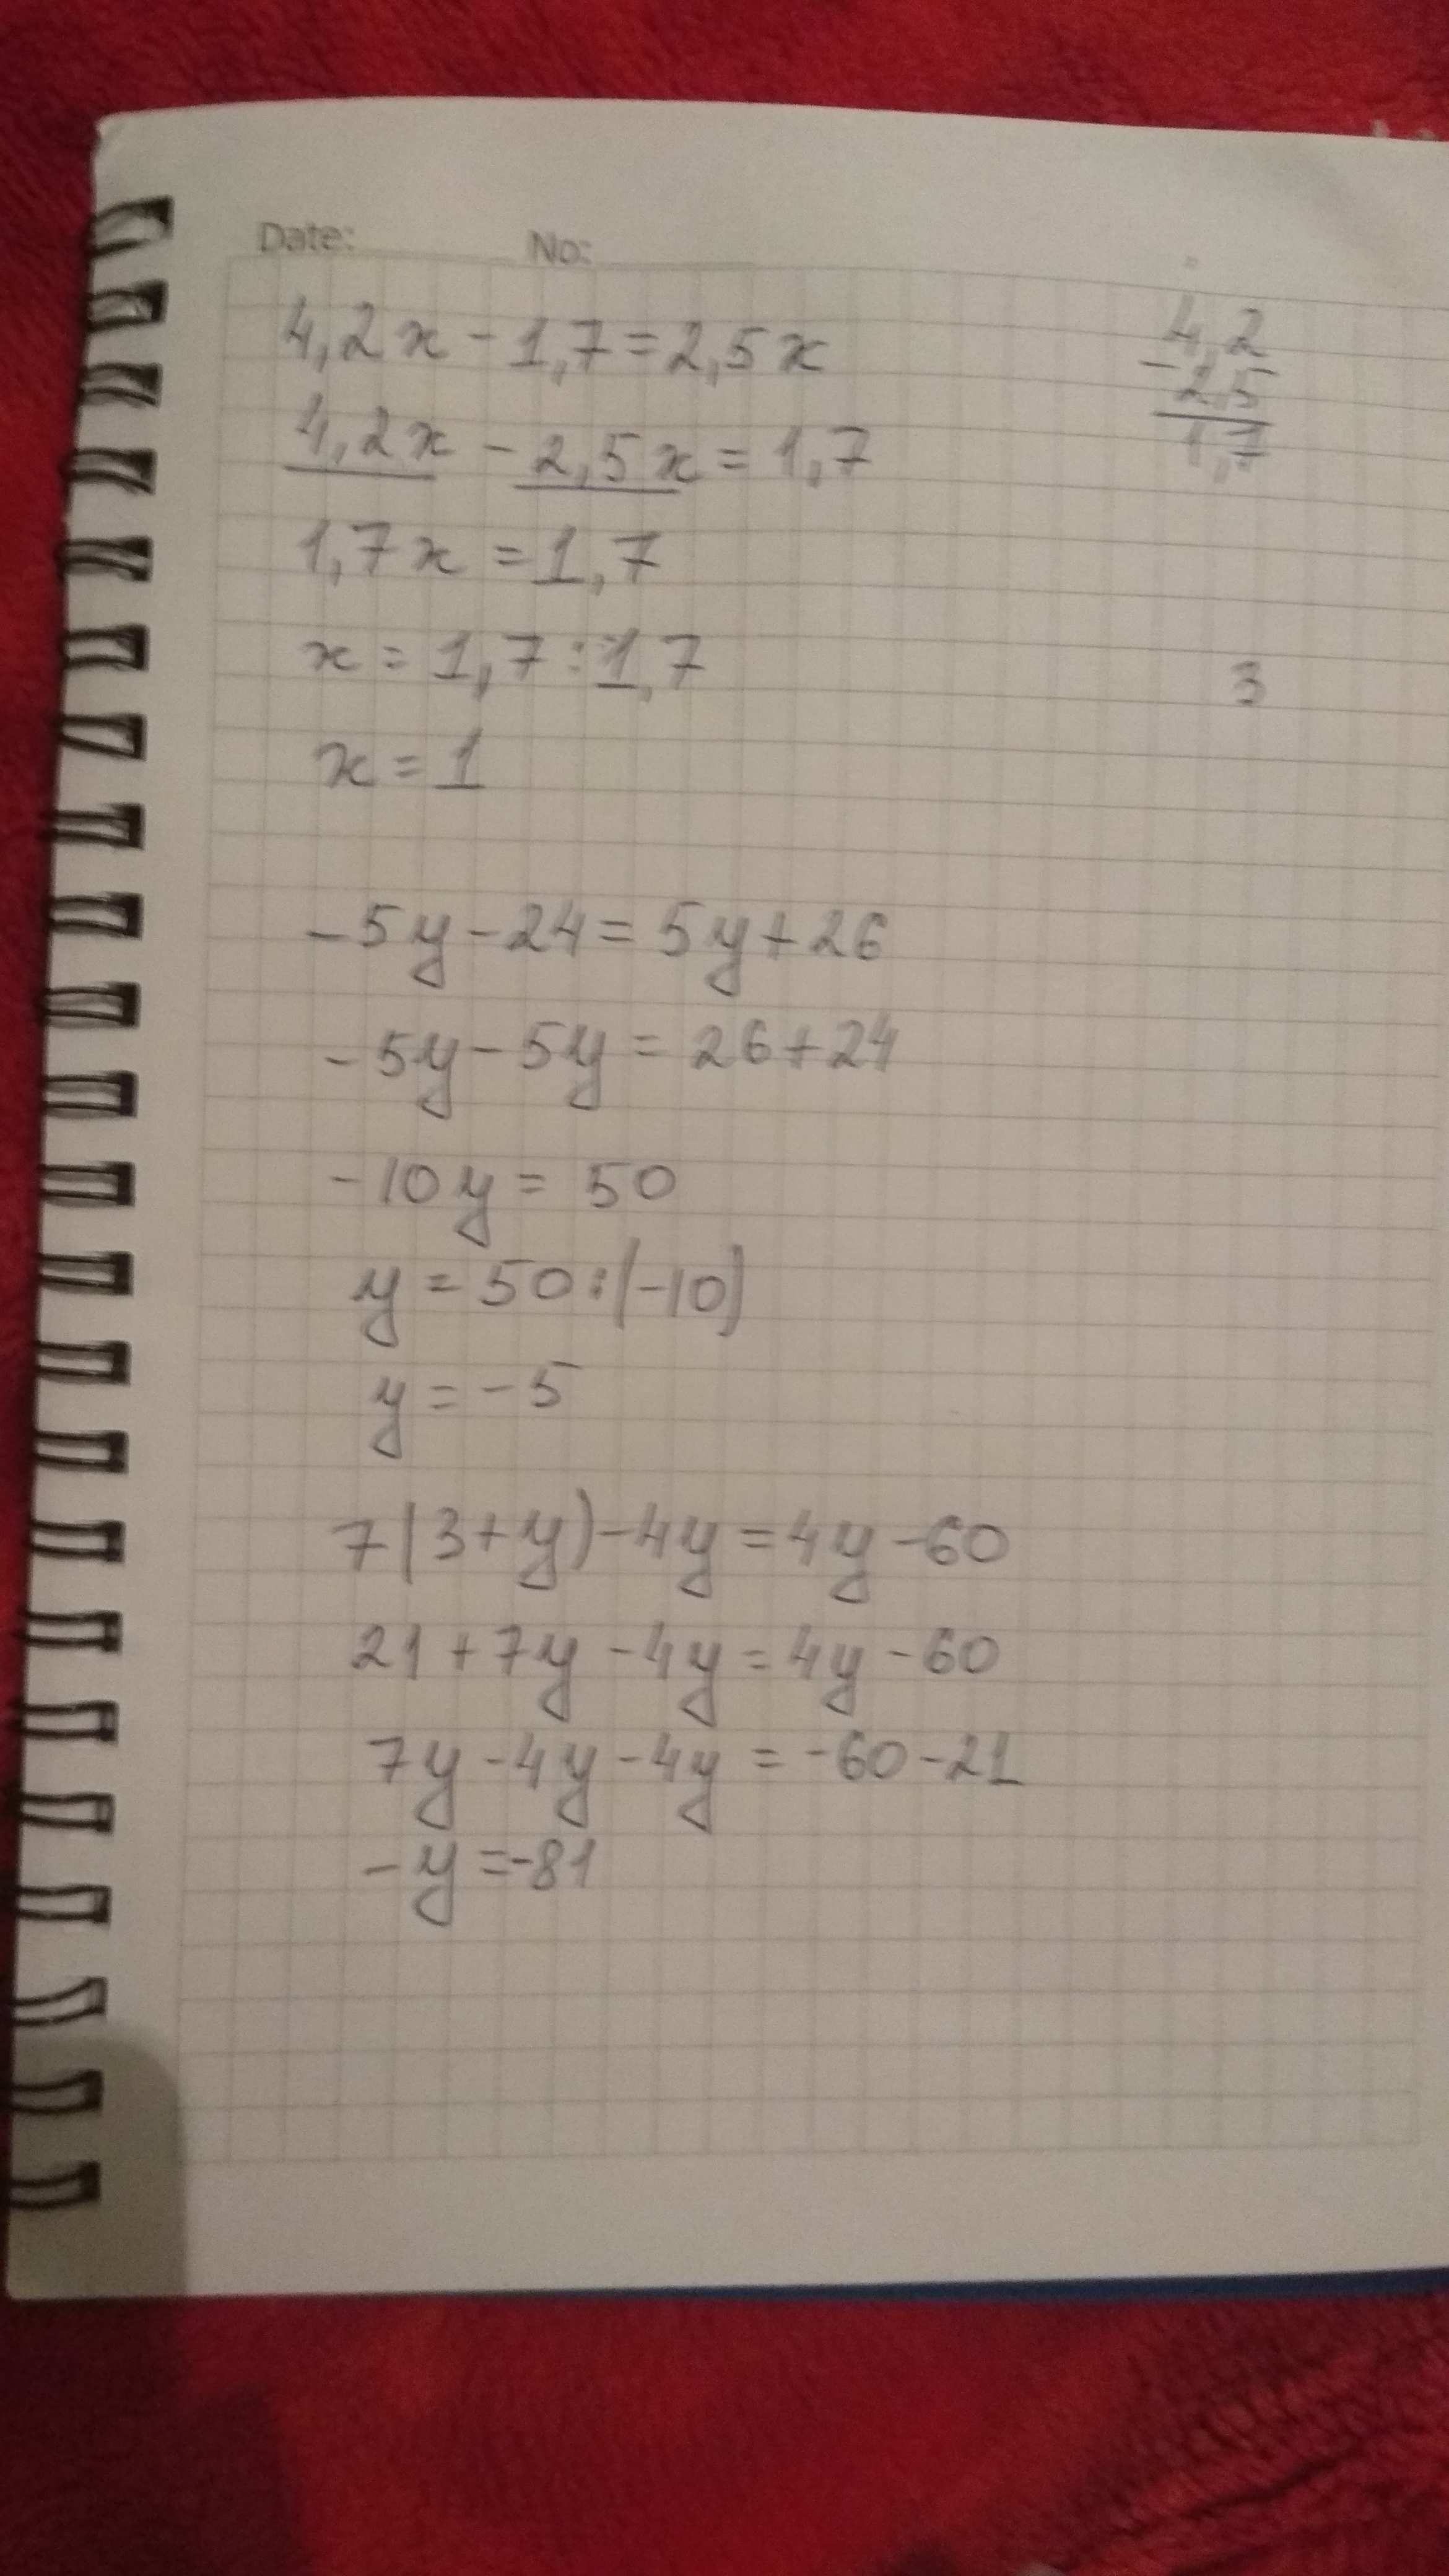 Date: No:
4,2x - 1,7 = 2,5x
4,2x - 2,5x = 1,7
1,7x = 1,7
x = 1,7 : 1,7
x = 1
4,2
- 2,5
1,7
3
-5y - 24 = 5y + 26
-5y - 5y = 26 + 24
-10y = 50
y = 50 : (-10)
y = -5
7(3+y) - 4y = 4y - 60
21 + 7y - 4y = 4y - 60
7y - 4y - 4y = -60 - 21
-y = -81